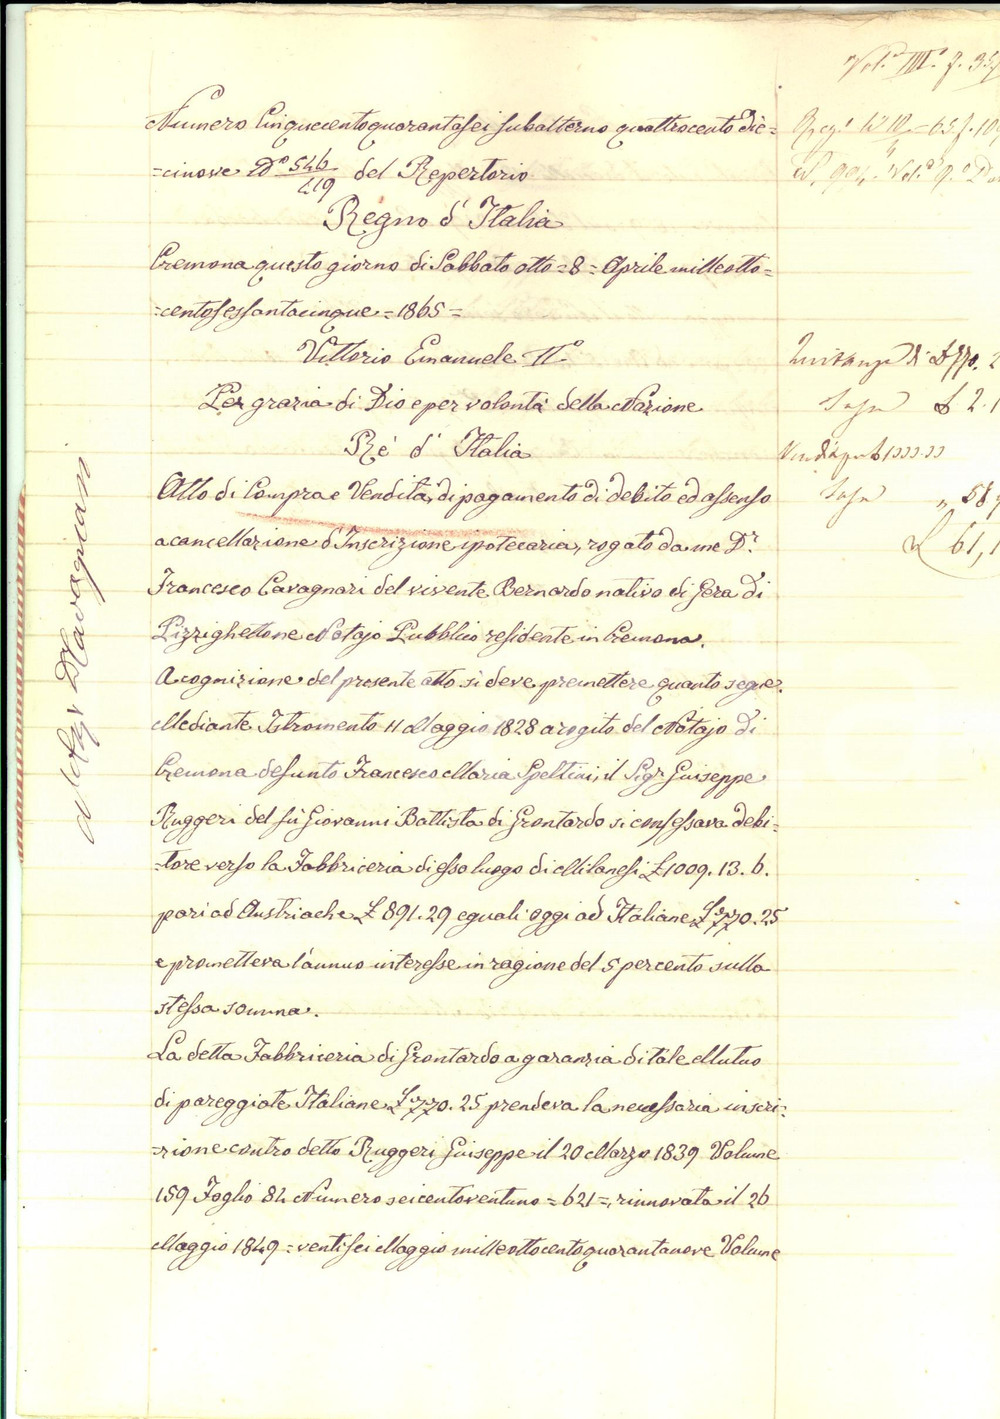 Vol.e III.o f. 35
Numero Cinquecentoquarantasei subalterno quattrocento die=
=cinove N.o 546/419 del Repertorio
Regno d' Italia
Cremona questo giorno di Sabbato otto = 8 = Aprile milleotto=
=centosessantacinque = 1865 =
Vittorio Emanuele II.o
Per grazia di Dio e per volontà della Nazione
Re d' Italia
Atto di Compra e Vendita, di pagamento di debito ed assenso
a cancellazione d'Inscrizione ipotecaria, rogato da me D.r
Francesco Cavagnari del vivente Bernardo nativo di Gera di
Pizzighettone Notajo Pubblico residente in Cremona.
A cognizione del presente atto si deve premettere quanto segue.
Mediante Istromento 11 Maggio 1828 a rogito del Notajo di
Cremona defunto Francesco Maria Speltini, il Sig.r Guiseppe
Ruggeri del fu Giovanni Battista di Grontardo si confessava debi=
=tore verso la Fabbriceria di esso luogo di Milanesi £ 1009. 13. 6.
pari ad Austriache £ 891.29 eguali oggi ad Italiane £ 770.25
e prometteva l'annuo interesse in ragione del 5 per cento sulla
stessa somma.
La detta Fabbriceria di Grontardo a garanzia di tale Mutuo
di pareggiate Italiane £ 770.25 prendeva la necessaria inscri=
=zione contro detto Ruggeri Guiseppe il 20 Marzo 1839 Volume
159 Foglio 84 Numero seicentoventuno = 621 =, rinnovata il 26
Maggio 1849 = ventisei Maggio milleottocentoquarantanove Volume
Quitanza di £ 770. 2
Tassa £ 2.1
Vendita per £ 1000.00
Tassa
£ 61,1